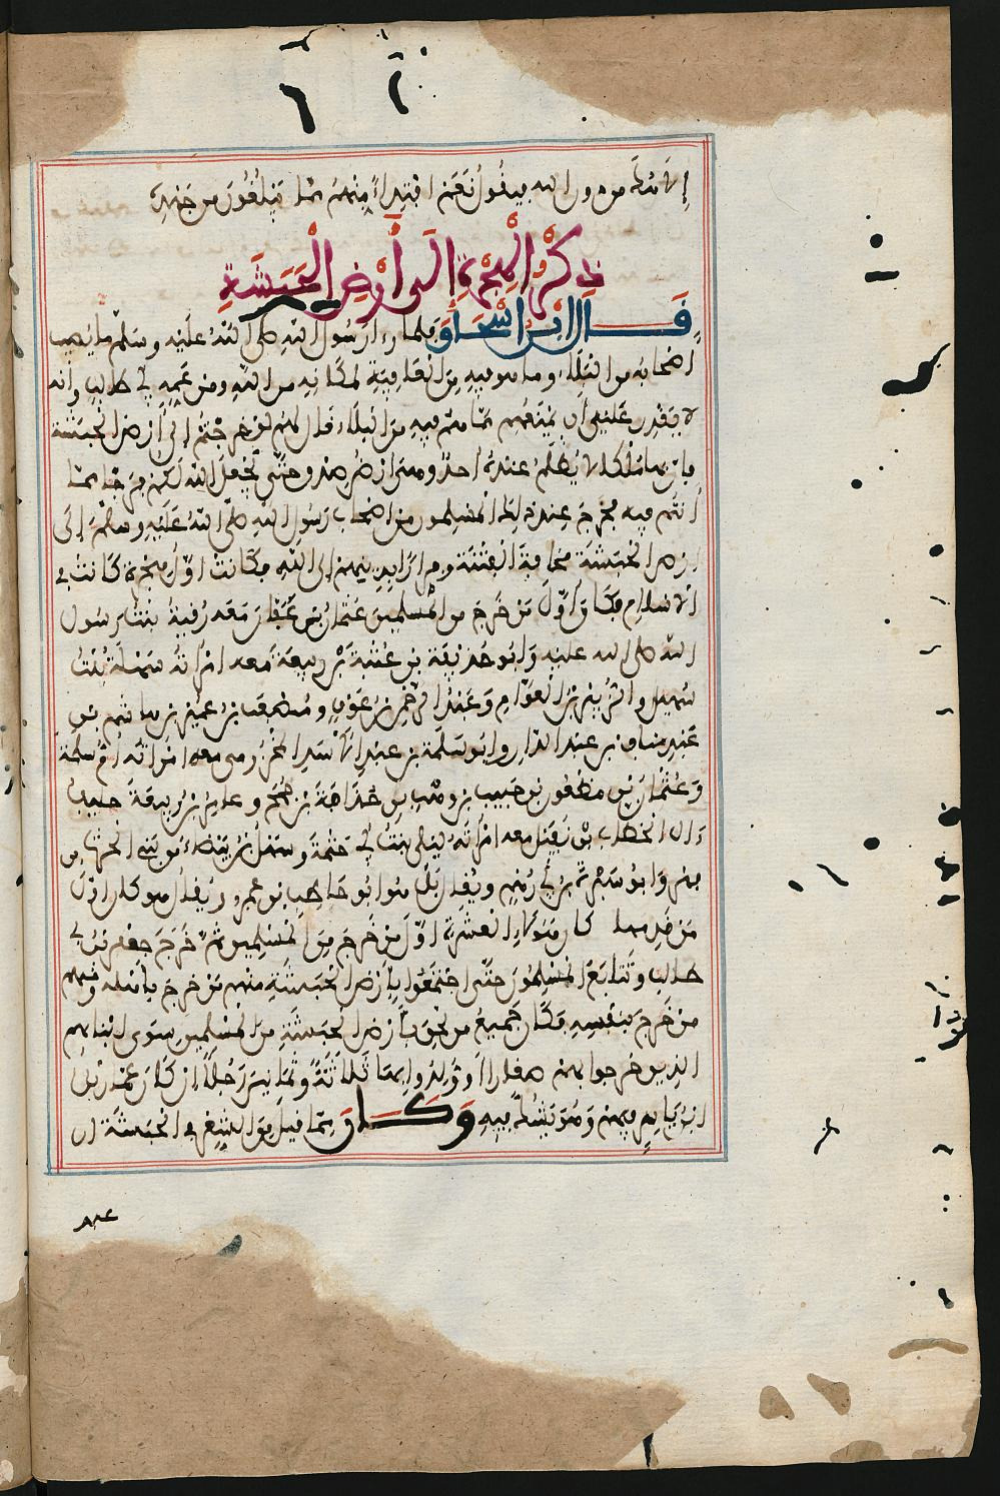 إلا نزلة من دون الله فيقول نعم افتداءً منهم مما يبلغون من جهده
ذكر الهجرة إلى أرض الحبشة
قال ابن إسحاق فلما رءا رسول الله صلى الله عليه وسلم ما يصيب
أصحابه من البلاء وما هو فيه من العافية لمكانه من الله ومن عمه أبي طالب وأنه
لا يقدر على أن يمنعهم مما هم فيه من البلاء قال لهم لو خرجتم إلى أرض الحبشة
فإن بها ملكا لا يظلم عنده أحد وهي أرض صدق حتى يجعل الله لكم فرجا مما
أنتم فيه فخرج عند ذلك المسلمون من أصحاب رسول الله صلى الله عليه وسلم إلى
أرض الحبشة مخافة الفتنة وفرارا بدينهم إلى الله فكانت أول هجرة كانت في
الإسلام فكان أول من خرج من المسلمين عثمان بن عفان معه رقية بنت رسول
الله صلى الله عليه وأبو حذيفة بن عتبة بن ربيعة معه امرأته سهلة بنت
سهيل والزبير بن العوام وعبد الرحمن بن عوف ومصعب بن عمير بن هاشم بن
عبد مناف بن عبد الدار وأبو سلمة بن عبد الأسد المخزومي معه امرأته أم سلمة
وعثمان بن مظعون بن حبيب بن وهب بن حذافة بن جمح وعامر بن ربيعة حليف
ءال الخطاب بن نفيل معه امرأته ليلى بنت أبي حثمة وسهل بن بيضاء من بني الحرث بن
فهر وأبو سبرة بن أبي رهم ويقال بل هو أبو حاطب بن عمرو ويقال هو كان أول
من قدمها كان هؤلاء العشرة أول من خرج من المسلمين ثم خرج جعفر بن أبي
طالب وتتابع المسلمون حتى اجتمعوا بأرض الحبشة منهم من خرج بأهله ومنهم
من خرج بنفسه فكان جميع من لحق بأرض الحبشة من المسلمين سوى أبنائهم
الذين خرجوا بهم صغارا أو ولدوا بها ثلاثة وثمانين رجلا إن كان عمار بن
ابن ياسر فيهم وهو يشك فيه وكان مما قيل من الشعر في الحبشة أن